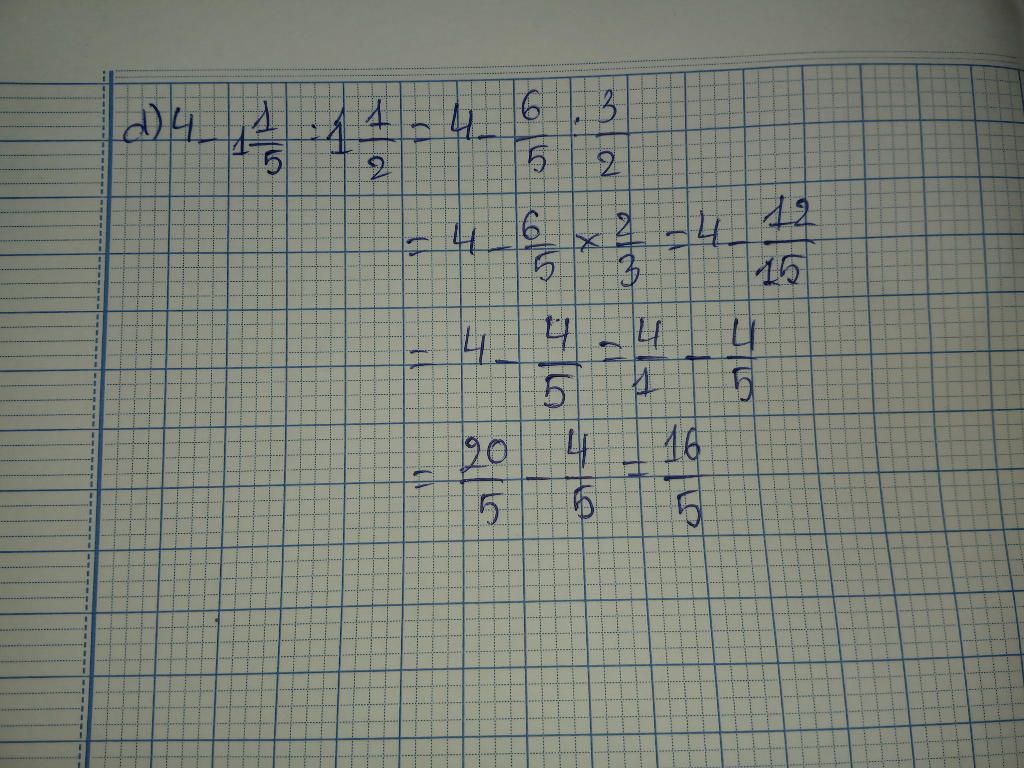 d) 4 - 1 1/5 : 1 1/2 = 4 - 6/5 : 3/2
= 4 - 6/5 × 2/3 = 4 - 12/15
= 4 - 4/5 = 4/1 - 4/5
= 20/5 - 4/5 = 16/5